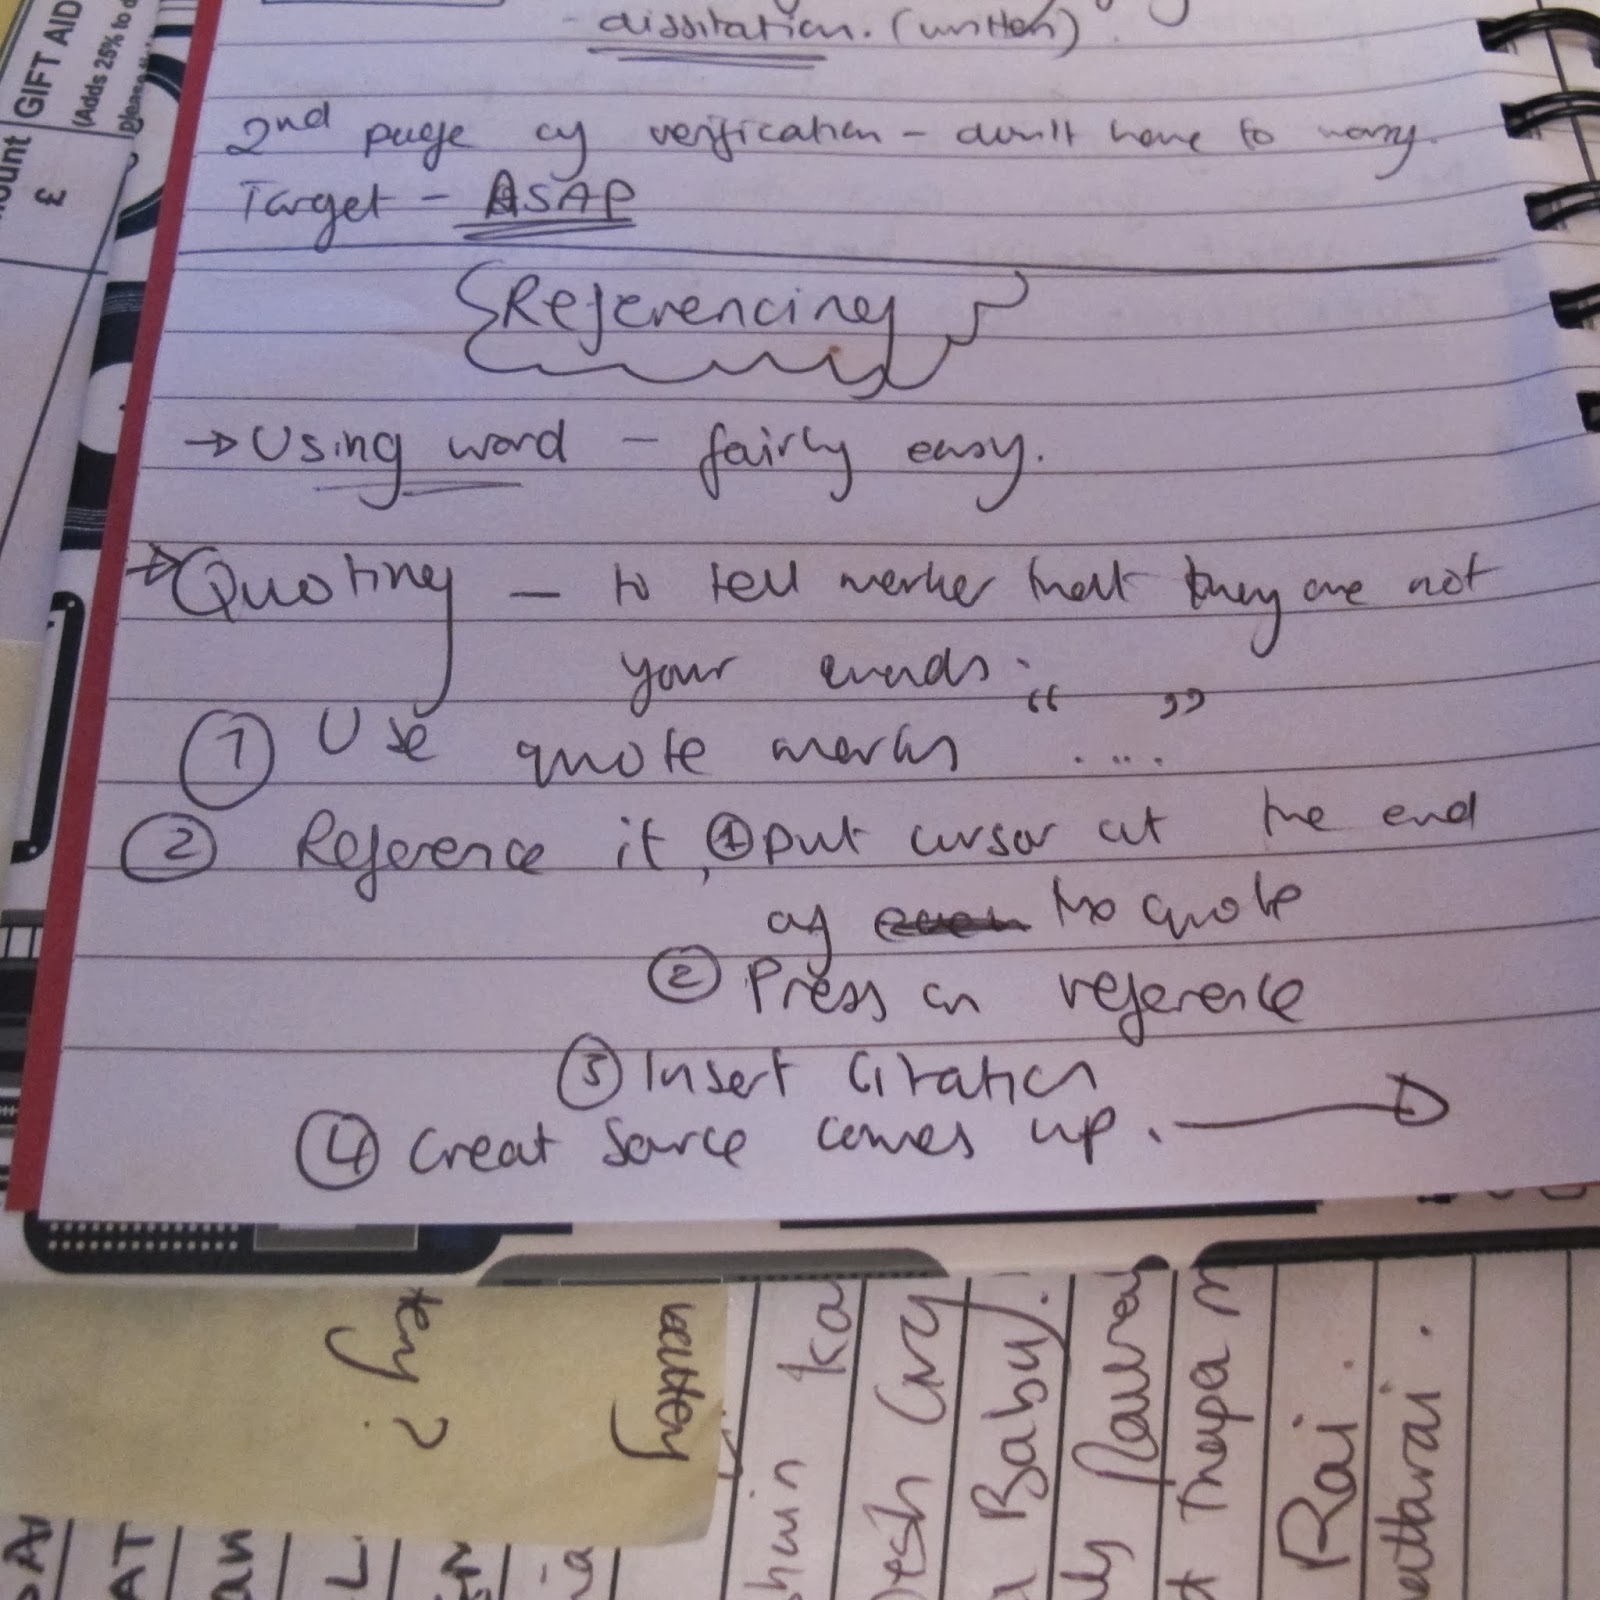 dissitation. (written)
2nd page of verification – don't have to worry.
Target – ASAP
Referencing
→ Using word – fairly easy.
→ Quoting – to tell marker that they are not
your words.
① Use quote marks “ .... ”
② Reference it, ① put cursor at the end
of the quote
② Press on reference
③ Insert Citation
④ Creat Source comes up. →
GIFT AID
(Adds 25% to d
£
?
Baby.
Thapa
Rai.